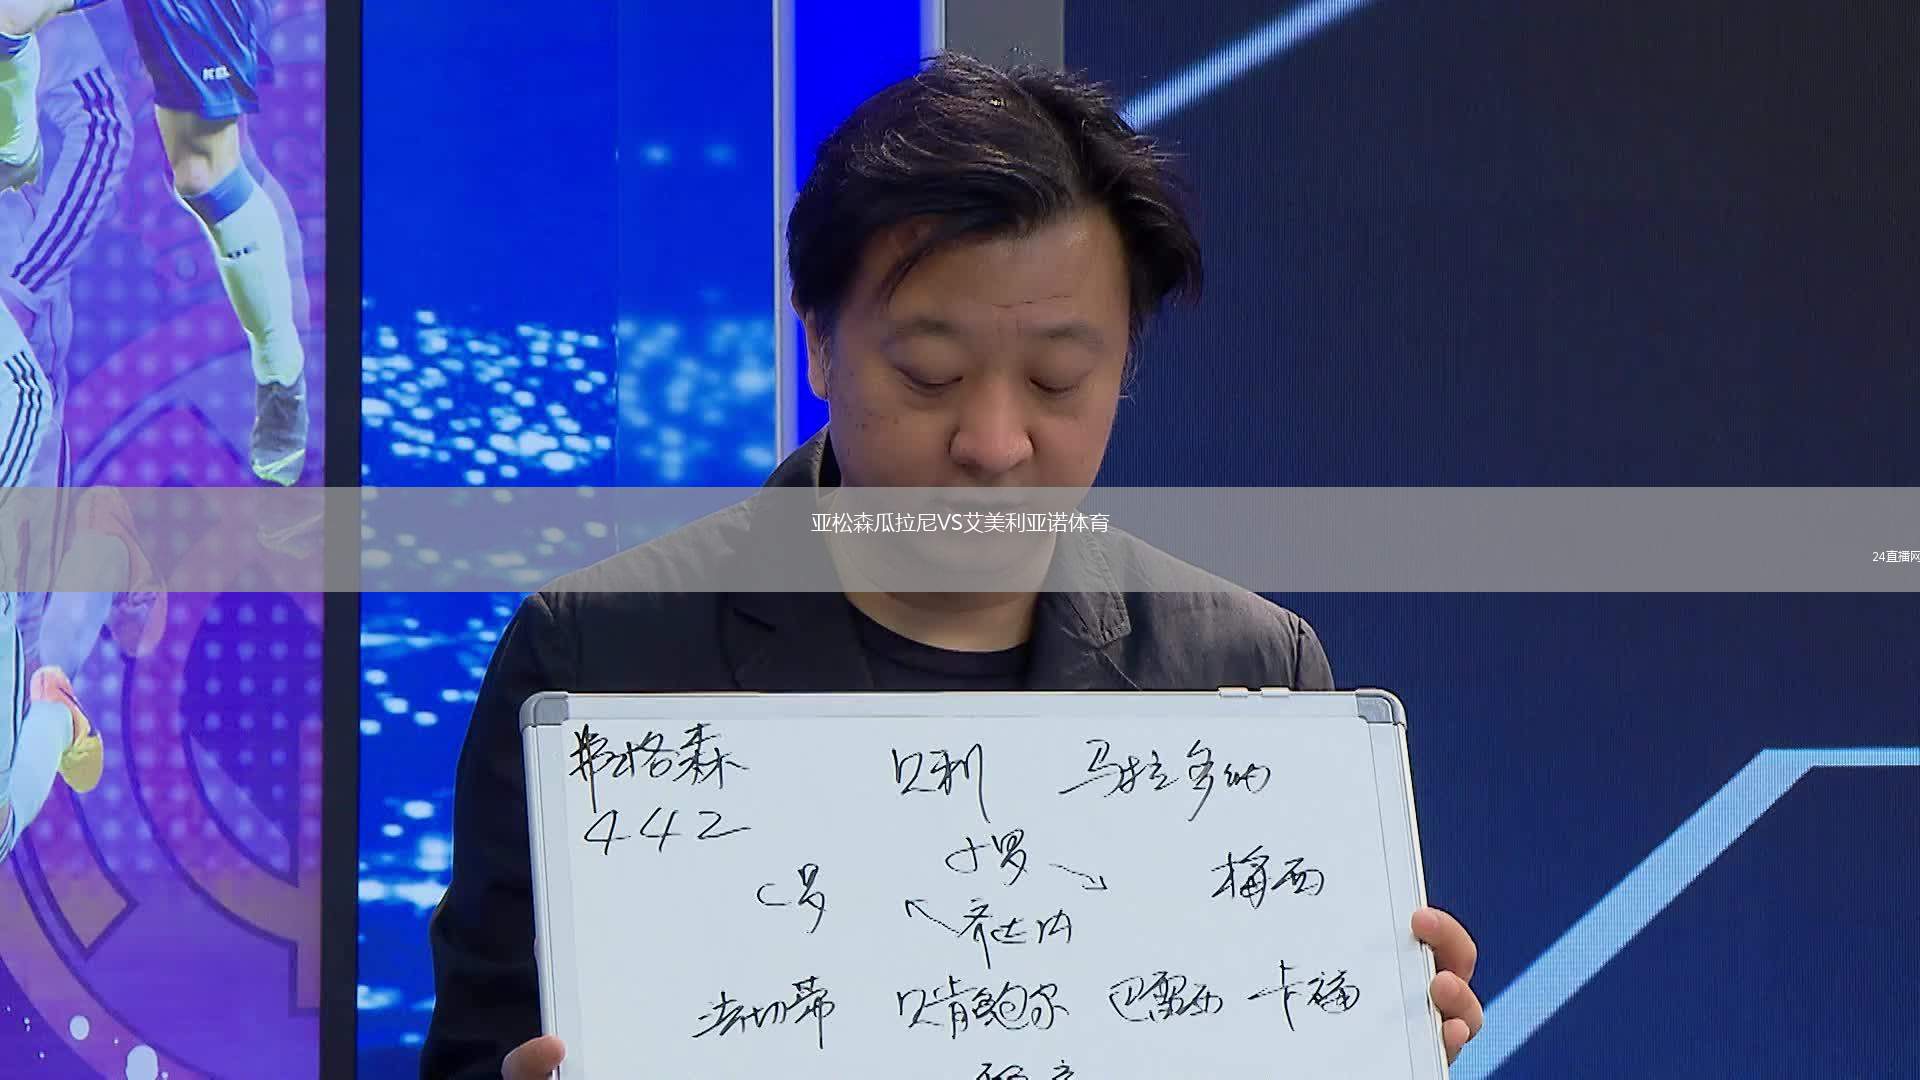 KEL
亚松森瓜拉尼VS艾美利亚诺体育
24直播网
弗格森 贝利 马拉多纳
442
小罗
C罗 梅西
齐达内
法切蒂 贝肯鲍尔 巴雷西 卡福